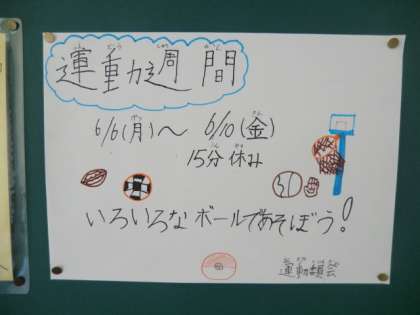 運動週間
6/6(月)～ 6/10(金)
15分休み
いろいろなボールであそぼう!
運動委員会